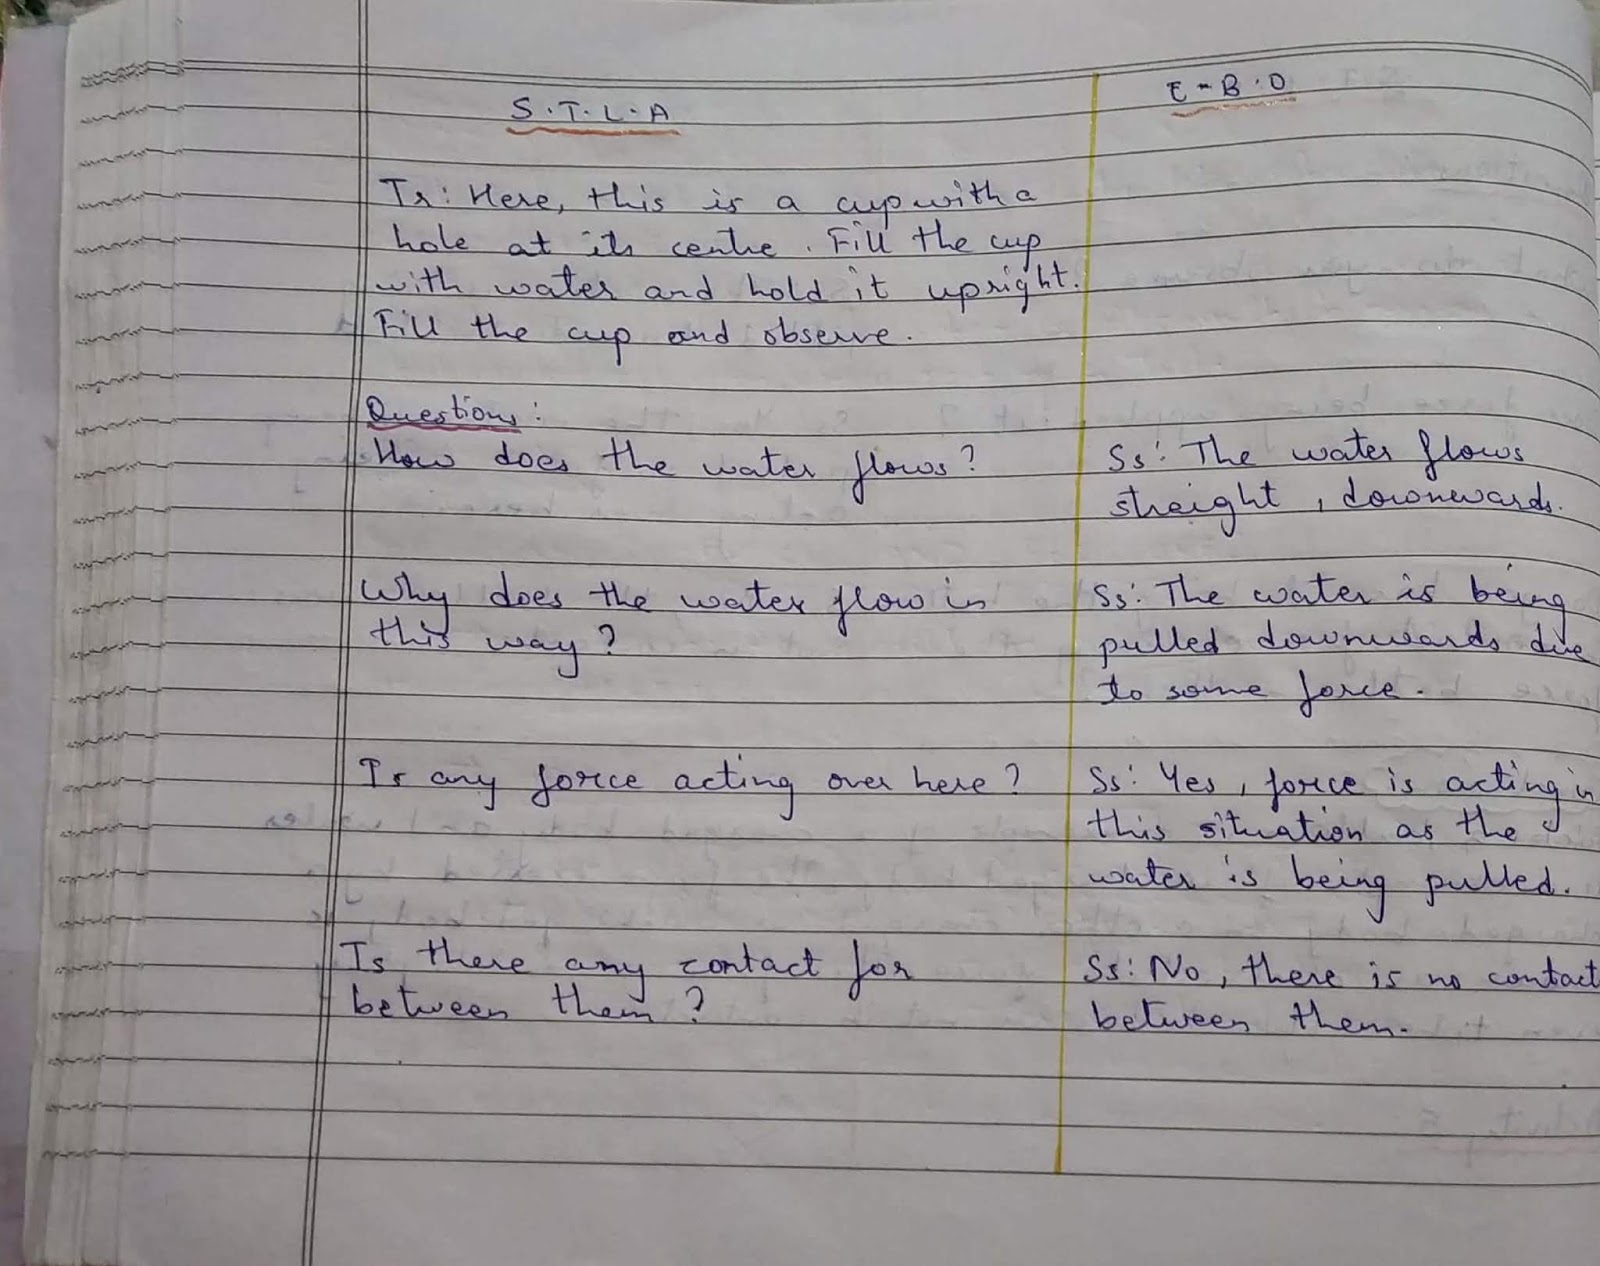 S.T.L.A
E-B.O
Tr: Here, this is a cup with a
hole at its centre. Fill the cup
with water and hold it upright.
Fill the cup and observe.
Questions:
How does the water flows?
Ss: The water flows
straight, downewards.
Why does the water flow in
this way?
Ss: The water is being
pulled downwards due
to some force.
Is any force acting over here?
Ss: Yes, force is acting in
this situation as the
water is being pulled.
Is there any contact for
between them?
Ss: No, there is no contact
between them.